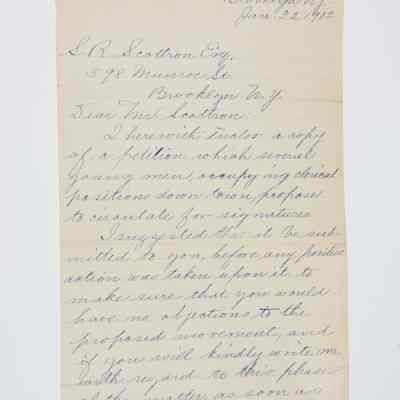 Brooklyn, N.Y.
Jan. 22 1902
S. R. Scottron Esq.
598 Monroe St.
Brooklyn N.Y.
Dear Mr. Scottron
I herewith Inclose a copy
of a petition which several
young men, occupying clerical
positions down town, propose
to circulate for signatures
I suggested that it be sub-
mitted to you, before any positive
action was taken upon it to
make sure that you would
have no objections to the
proposed movement, and
if you will kindly write me
with regard to this phase
of the matter as soon as